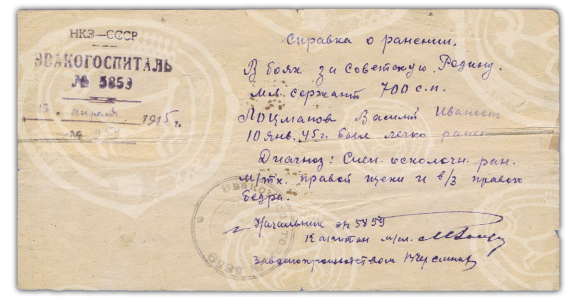 НКЗ–СССР
ЭВАКОГОСПИТАЛЬ
№ 5859
13 апреля 1945 г.
Справка о ранении.
В боях за Советскую Родину.
мл. сержант 700 с.п.
Лоцманов Василий Иванович
10 янв. 45 г. был легко ранен
Диагноз: Слеп. осколочн. ран.
м/тк. правой щеки и в/3 правого
бедра.
Начальник эг 5859
Капитан м/сл.
Завделопроизводством